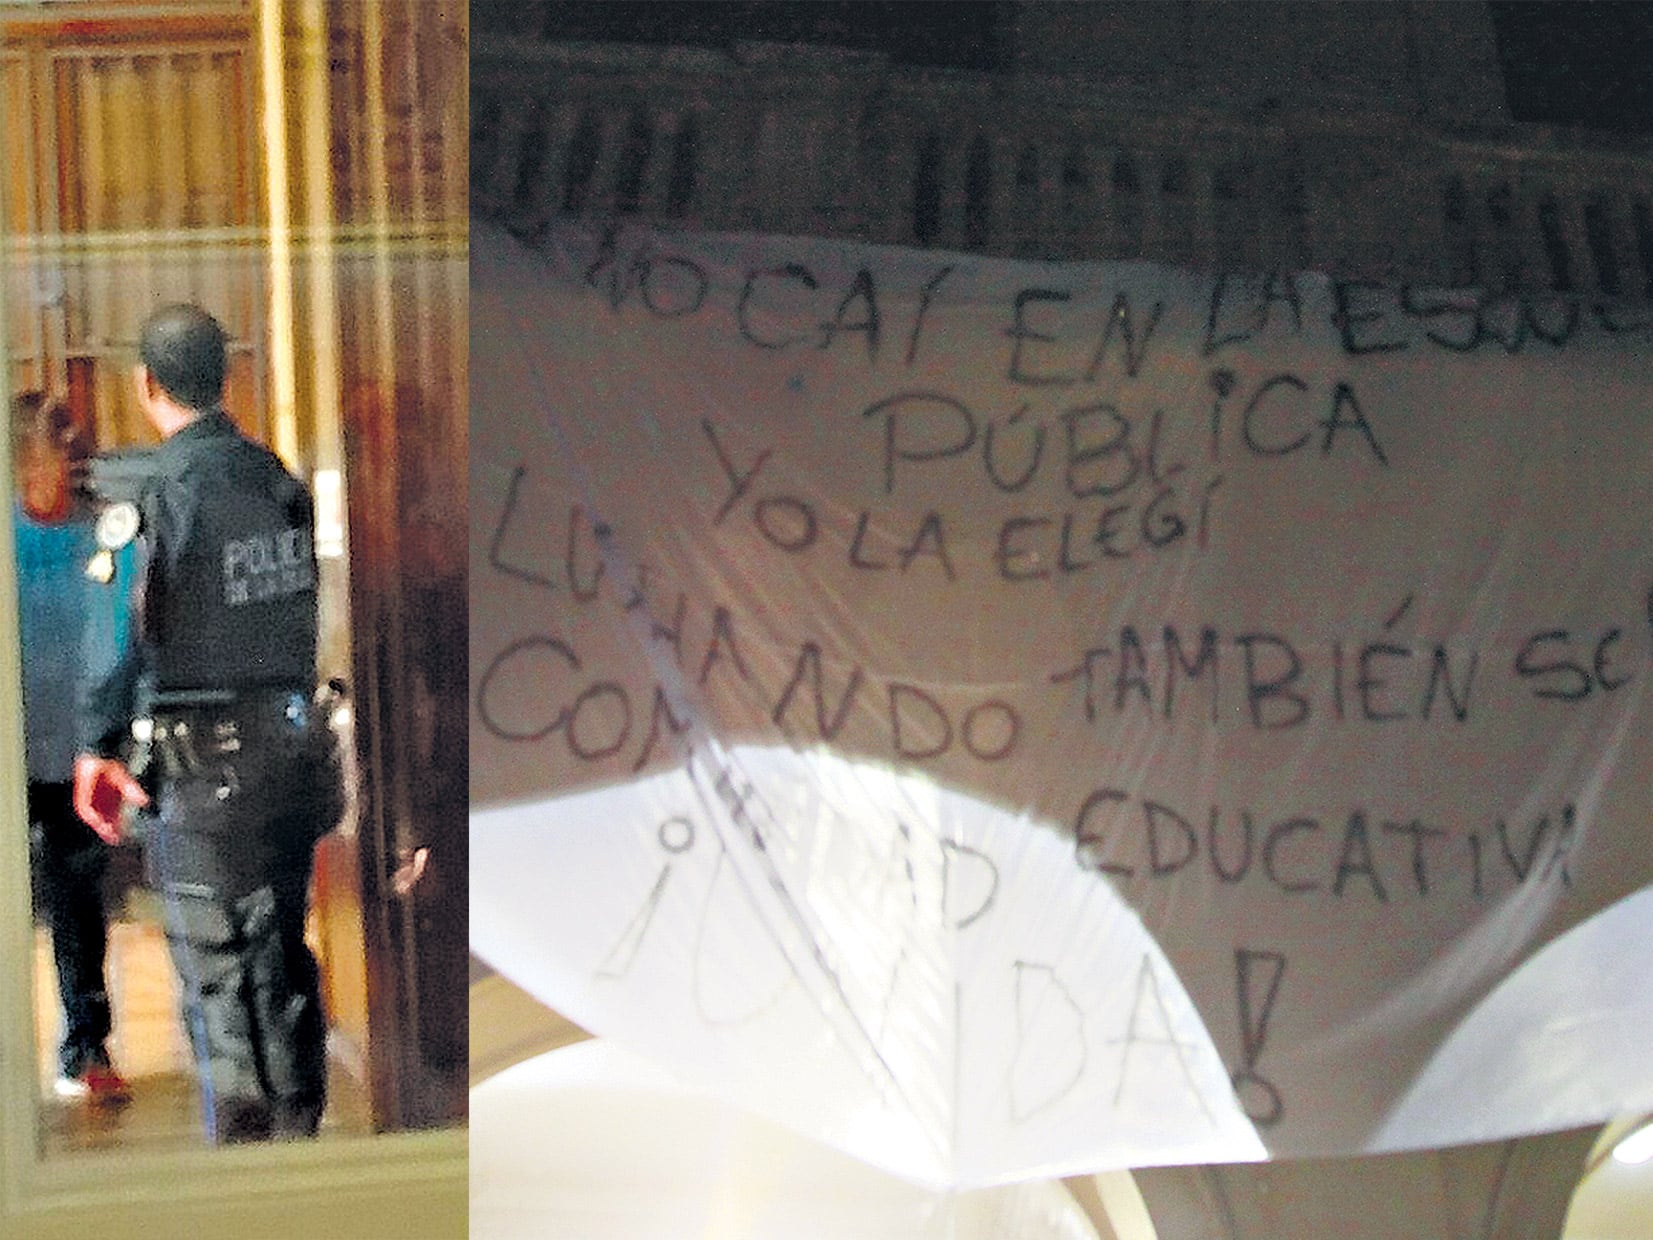 POLIC
NO CAÍ EN LA ESCUE
PÚBLiCA
YO LA ELEGÍ
LUCHANDO TAMBIÉN SE
COMUNIDAD EDUCATIVA
¡UNIDA!